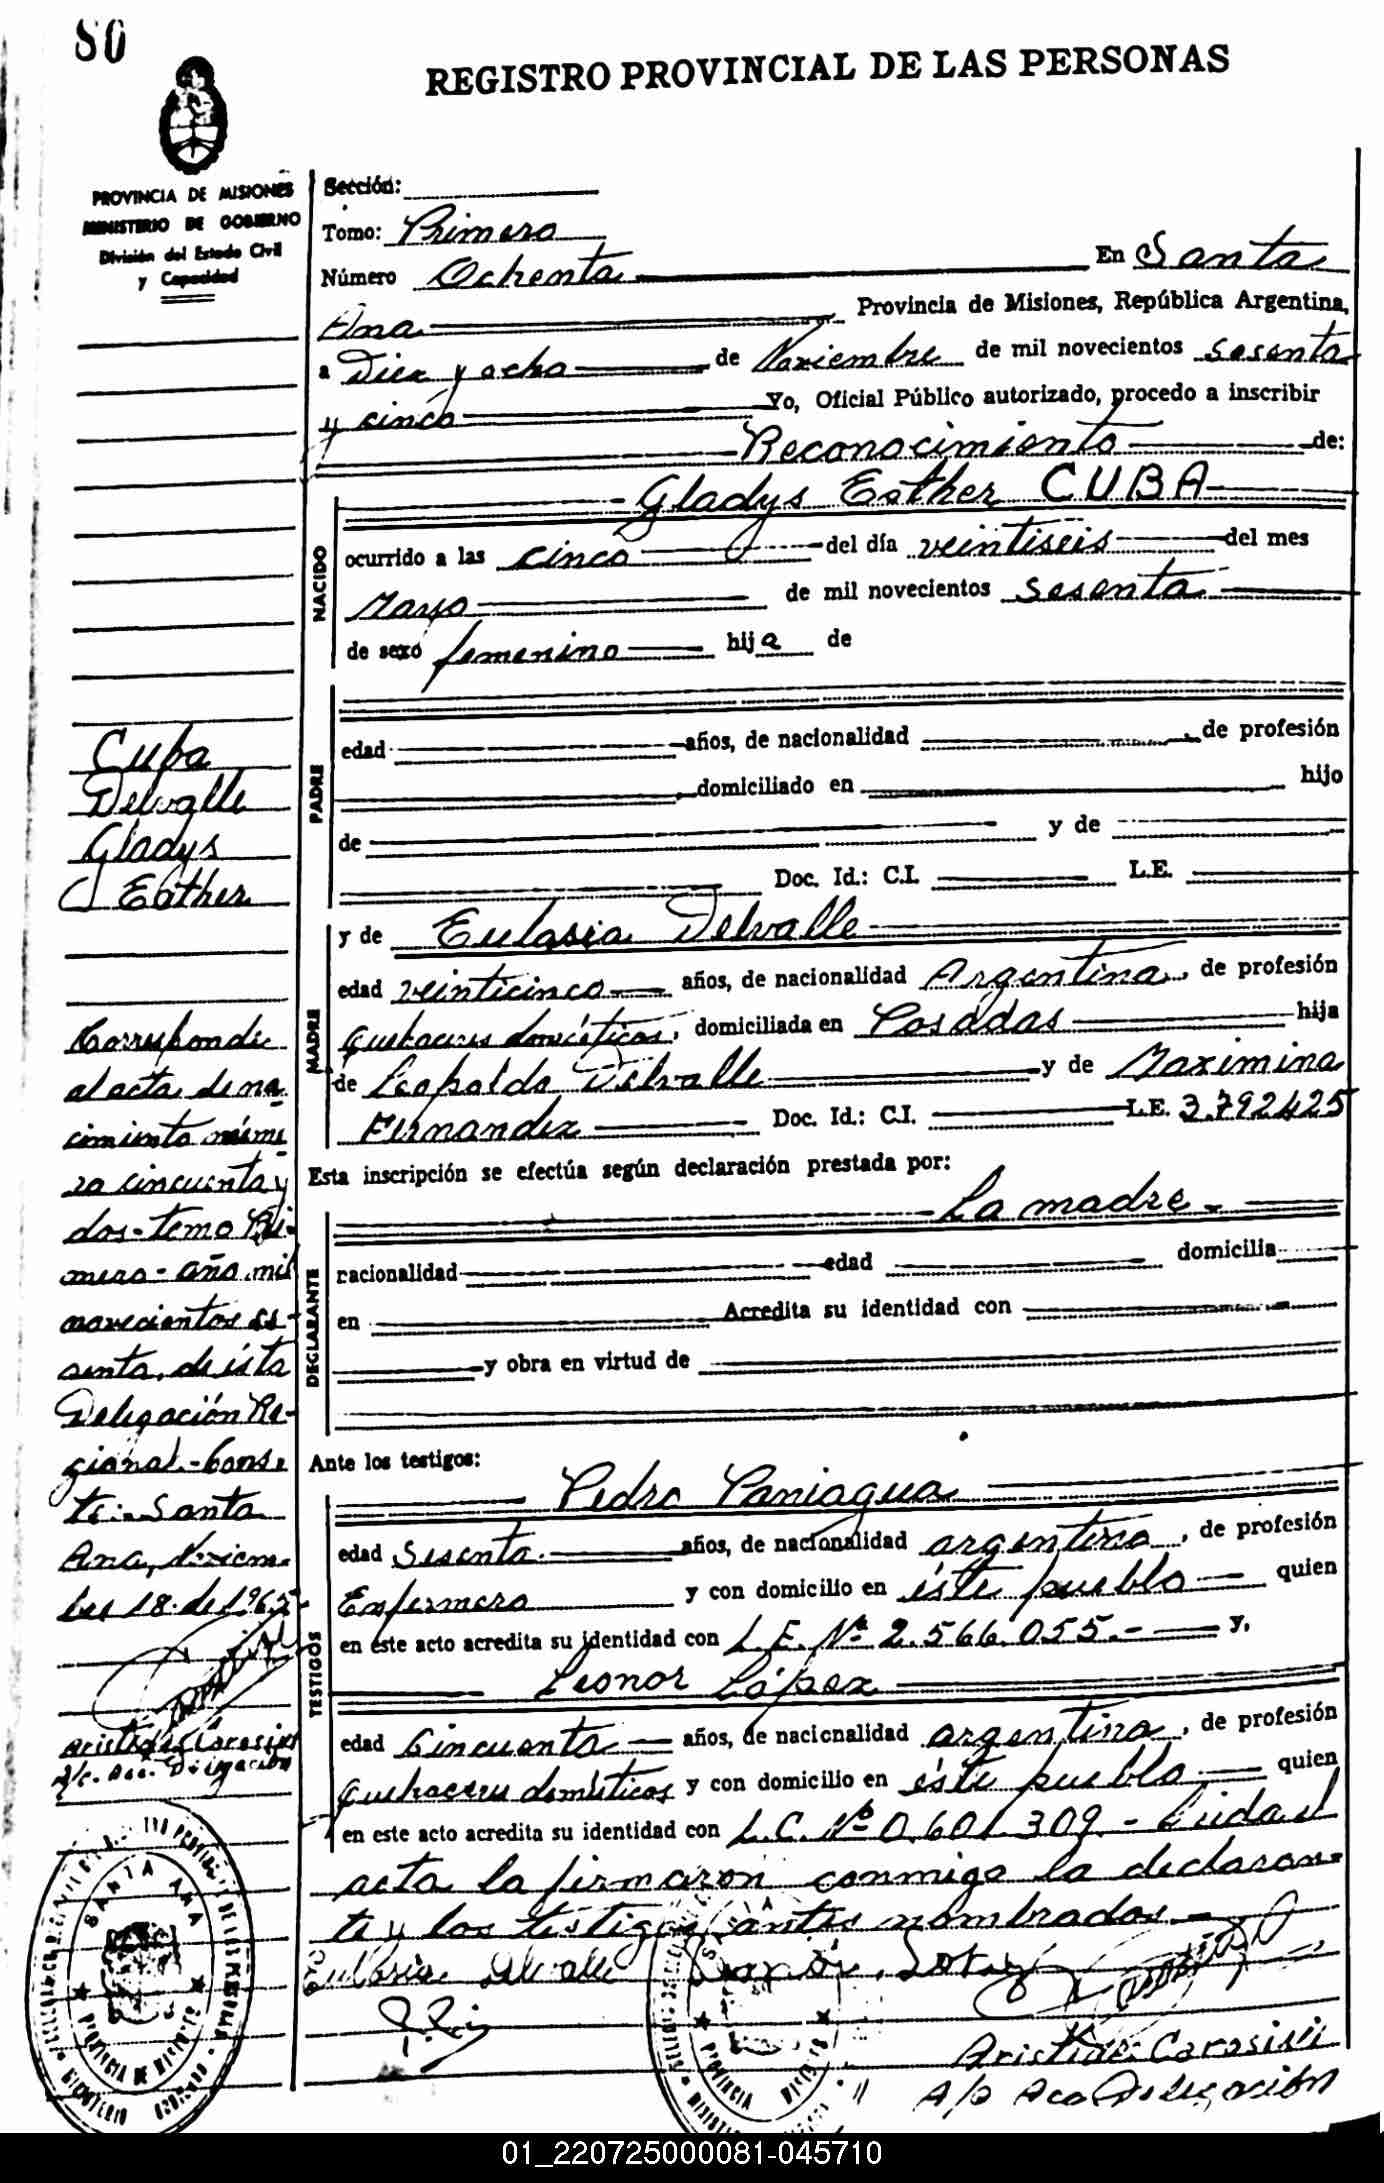 80
REGISTRO PROVINCIAL DE LAS PERSONAS
PROVINCIA DE MISIONES
MINISTERIO DE GOBIERNO
División del Estado Civil
y Capacidad
Sección:
Tomo: Primero
Número Ochenta En Santa
Ana Provincia de Misiones, República Argentina,
a Diez y ocho de Noviembre de mil novecientos sesenta
y cinco Yo, Oficial Público autorizado, procedo a inscribir
Reconocimiento de:
Gladys Esther CUBA
NACIDO
ocurrido a las cinco del día veintiseis del mes
Mayo de mil novecientos sesenta
de sexo femenino hija de
PADRE
edad años, de nacionalidad de profesión
domiciliado en hijo
de y de
Doc. Id.: C.I. L.E.
MADRE
y de Eulasia Delvalle
edad veinticinco años, de nacionalidad Argentina, de profesión
quehaceres domésticos, domiciliada en Posadas hija
de Leopoldo Delvalle y de Maximina
Fernandez Doc. Id.: C.I. L.E. 3.792425
Esta inscripción se efectúa según declaración prestada por:
La madre.-
DECLARANTE
racionalidad edad domicilia
en Acredita su identidad con
y obra en virtud de
Ante los testigos:
TESTIGOS
Pedro Paniagua
edad Sesenta años, de nacionalidad argentino, de profesión
Enfermero y con domicilio en éste pueblo quien
en este acto acredita su identidad con L.E. Nº 2.566.055.- y,
Leonor López
edad Cincuenta años, de nacionalidad argentina, de profesión
quehaceres domésticos y con domicilio en éste pueblo quien
en este acto acredita su identidad con L.C. Nº 0.601.309.- Leida el
acta la firmaron conmigo la declaran-
te y los testigos antes nombrados.-
Eulasia Delvalle
Aristides Carosini
A/c Acc Delegación
Cuba
Delvalle
Gladys
Esther
Corresponde
al acta de na
cimiento núme
ro cincuenta y
dos-tomo Pri-
mero-año mil
novecientos se-
senta, de ésta
Delegación Re-
gional.-Cons-
te.-Santa
Ana, Noviem-
bre 18 de 1965-
Aristides Carosini
A/c. Acc. Delegación
SANTA ANA
PROVINCIA DE MISIONES
MINISTERIO GOBIERNO
PROVINCIA MISIONES
01_220725000081-045710